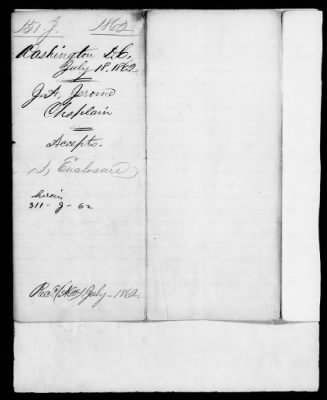 151 J. 1862
Washington D.C,
July 18, 1862
J. A, Jerome
Chaplain
Accepts.
1, Enclosure,
herein
311 - J - 62
Rec'd July - 1862